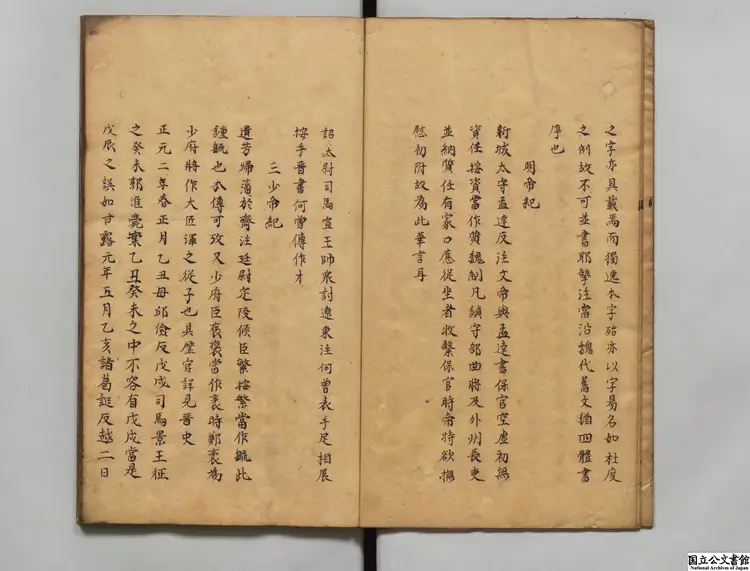 之字亦具載焉而獨逸本字殆亦以字易名如杜度
之例故不可並書耶摯注當沿魏代舊文猶四體書
序也
明帝紀
新城太守孟達反注文帝與孟達書保官空虛初無
資任按資當作質魏制凡鎮守部曲將及外州長吏
並納質任有家口應從坐者收繫保官時帝特欲撫
慰初附故為此華言耳
詔太尉司馬宣王帥衆討遼東注何曾表手足相展
按手晉書何曾傳作才
三少帝紀
遣芳歸藩於齊注廷尉定陵侯臣繁按繁當作毓此
鍾毓也本傳可攷又少府臣褒褒當作袤時鄭袤為
少府將作大匠渾之從子也具歷官詳見晉史
正元二年春正月乙丑毋邱儉反戊戌司馬景王征
之癸未郭淮薨案乙丑癸未之中不容有戊戌當是
戊辰之誤如甘露元年五月乙亥諸葛誕反越二日
国立公文書館
National Archives of Japan